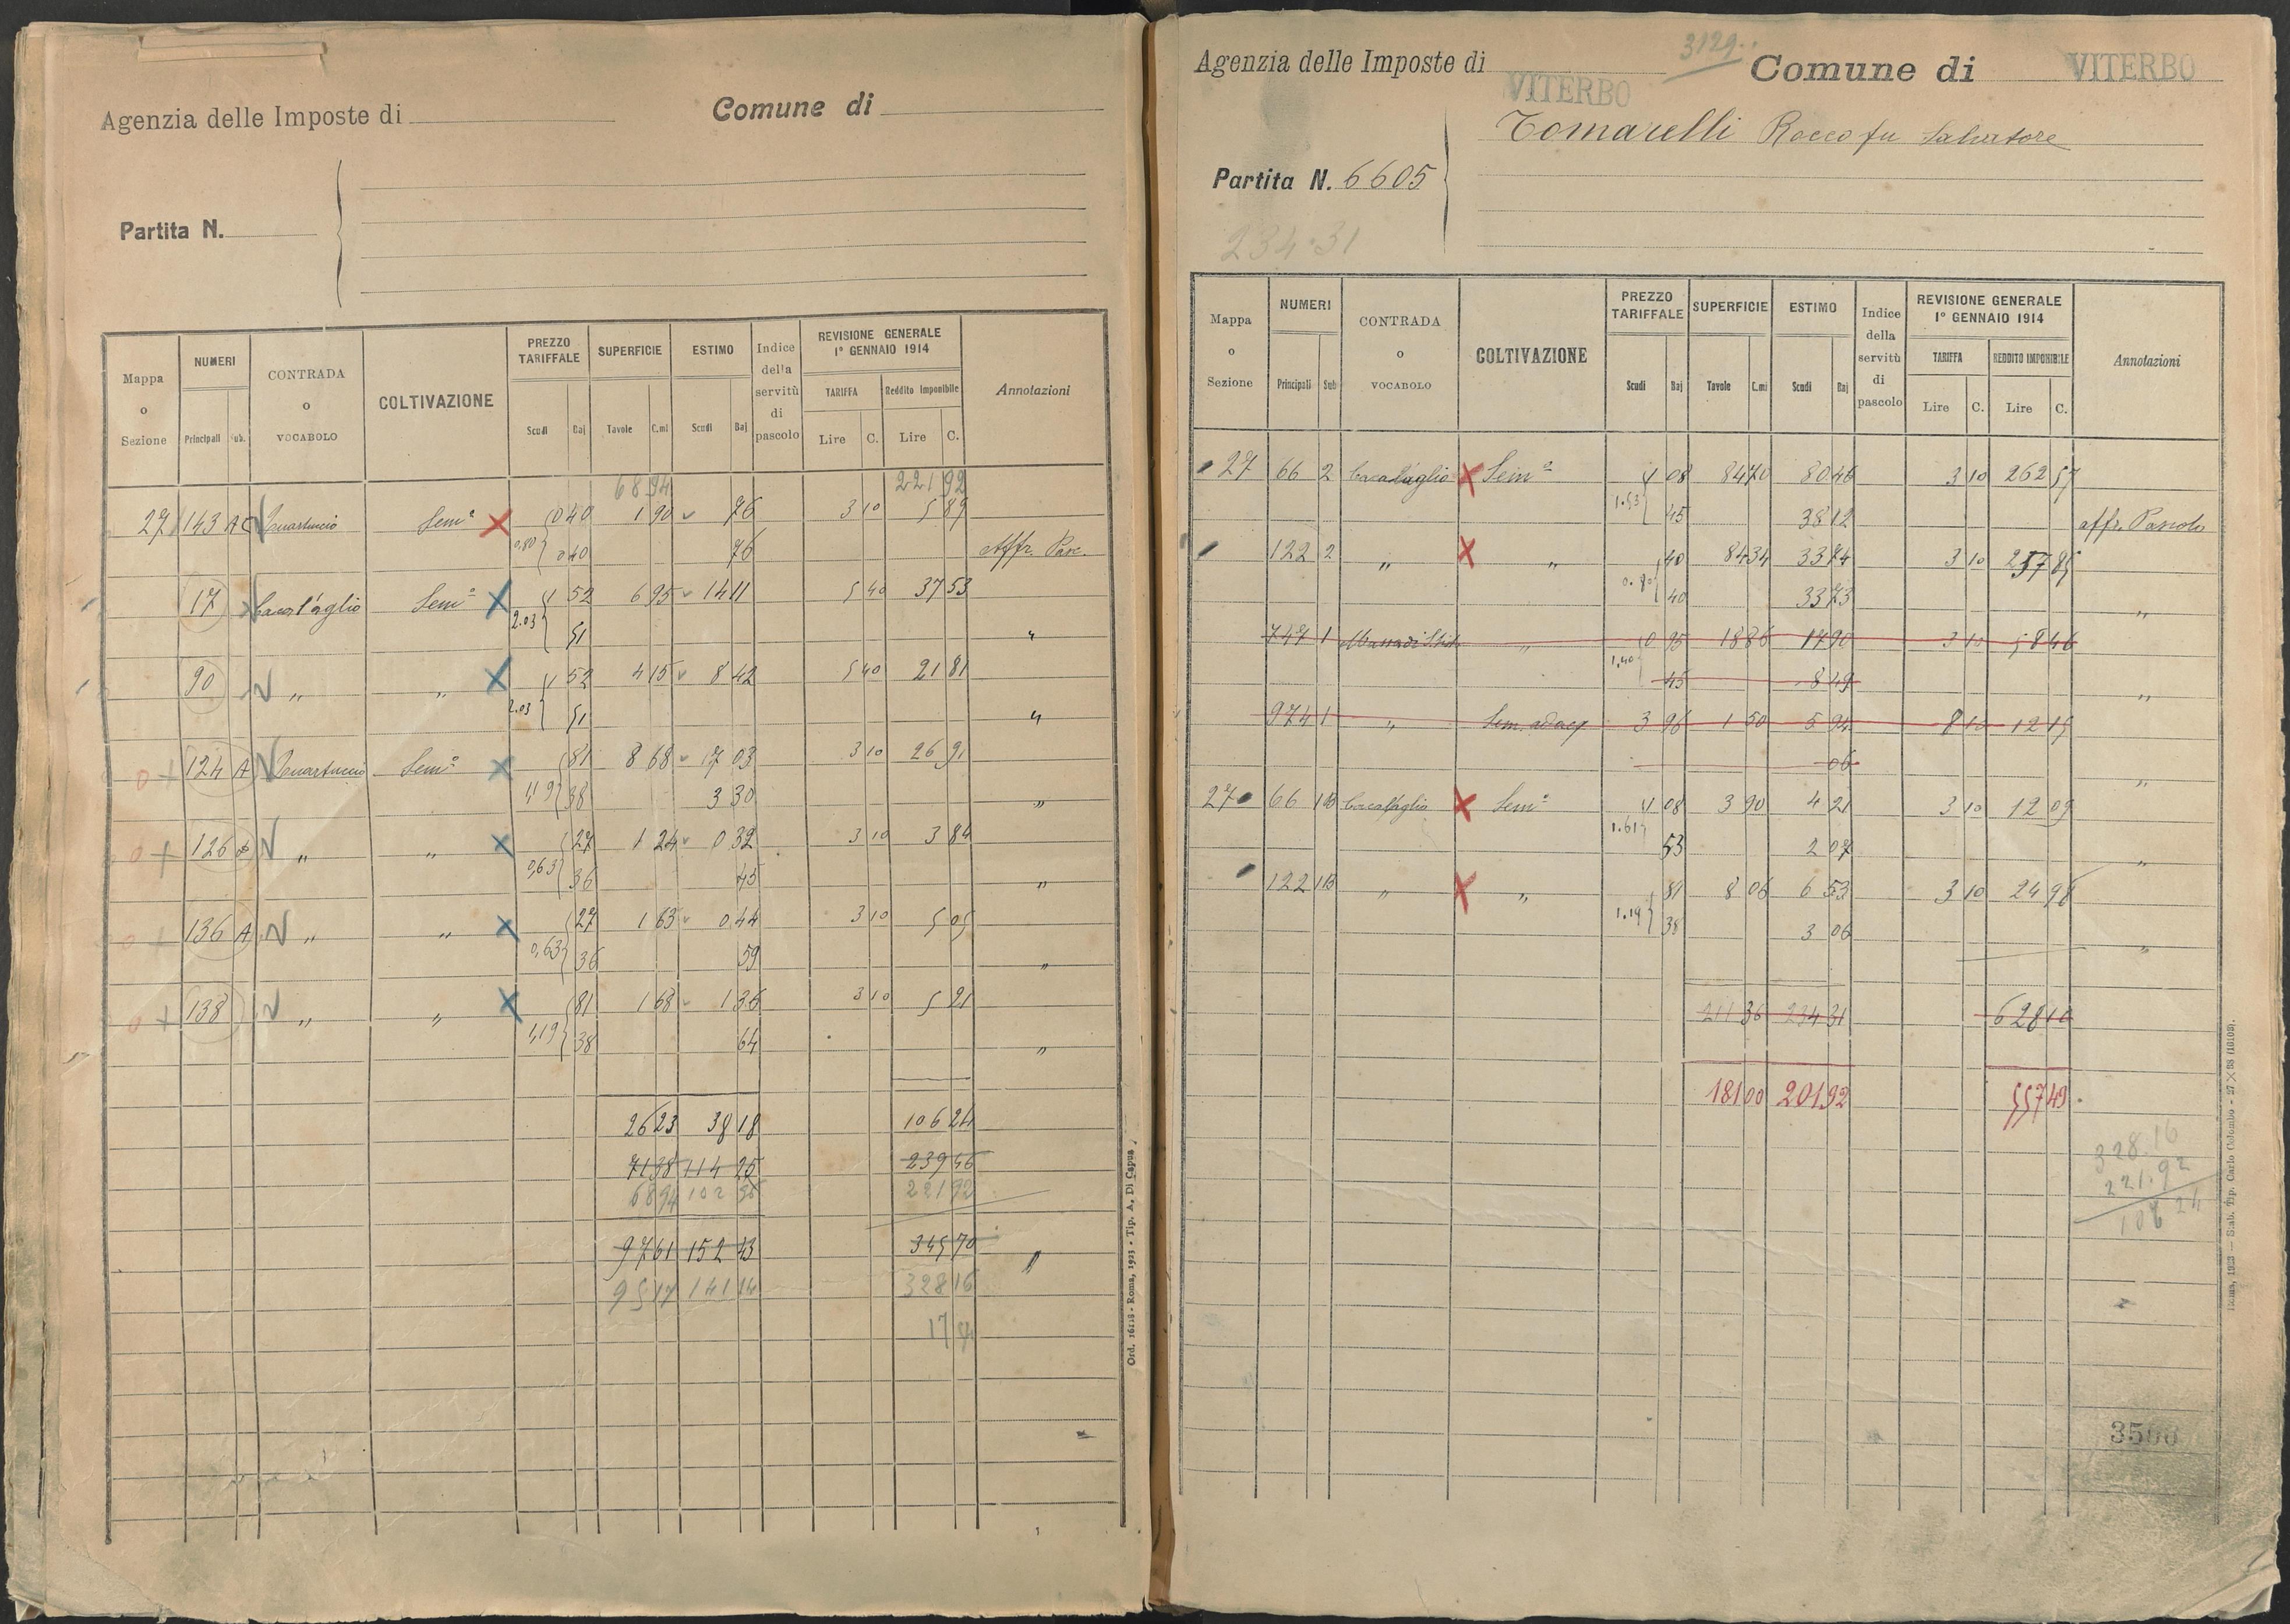 Agenzia delle Imposte di
Comune di
Partita N.
Mappa o Sezione NUMERI Principali Sub. CONTRADA o VOCABOLO COLTIVAZIONE PREZZO TARIFFALE Scudi Baj SUPERFICIE Tavole C.mi ESTIMO Scudi Baj Indice della servitù di pascolo REVISIONE GENERALE 1° GENNAIO 1914 TARIFFA Lire C. Reddito imponibile Lire C. Annotazioni
68 94 221 92
27 143 Sem° 0 40 1 90 76 3 10 5 89
0,80 0 40 76 Affr. Pasc.
17 Sem° 1 52 6 95 14 11 5 40 37 53
2.03 51 "
90 " " 1 52 4 15 8 42 5 40 21 81
2.03 51 "
124 A Sem° 81 8 68 17 03 3 10 26 91
1,19 38 3 30 "
126 " " 27 1 24 0 32 3 10 3 84
0,63 36 45 "
136 A " " 27 1 63 0 44 3 10 5 05
0,63 36 59 "
138 " " 81 1 68 1 36 3 10 5 21
1,19 38 64 "
26 23 38 18 106 24
71 38 114 25 239 46
68 94 102 96 221 92
97 61 152 43 345 70 "
95 17 141 14 328 16
Ord. 16118 - Roma, 1923 - Tip. A. Di Capua
3129
Agenzia delle Imposte di VITERBO Comune di VITERBO
Tomarelli Rocco fu Salvatore
Partita N. 6605
234.31
Mappa o Sezione NUMERI Principali Sub CONTRADA o VOCABOLO COLTIVAZIONE PREZZO TARIFFALE Scudi Baj SUPERFICIE Tavole C.mi ESTIMO Scudi Baj Indice della servitù di pascolo REVISIONE GENERALE 1° GENNAIO 1914 TARIFFA Lire C. REDDITO IMPONIBILE Lire C. Annotazioni
27 66 2 Sem° 1 08 84 70 80 46 3 10 262 57
1.53 45 38 12 affr. Pascolo
122 2 " " 40 84 34 33 74 3 10 257 85
0.80 40 33 73 "
747 1 " 0 95 18 86 17 90 3 10 58 46
1,40 45 8 49 "
974 1 " Sem. adacq 3 96 1 50 5 94 8 10 12 15
06 "
27 66 1B Sem° 1 08 3 90 4 21 3 10 12 09
1.61 53 2 07 "
122 1B " " 81 8 06 6 53 3 10 24 98
1.19 38 3 06 "
211 36 234 31 628 10
181 00 201 92 557 49
328.16
221.92
106 24
3500
Roma, 1923 — Stab. Tip. Carlo Colombo - 27 X 38 (16108).